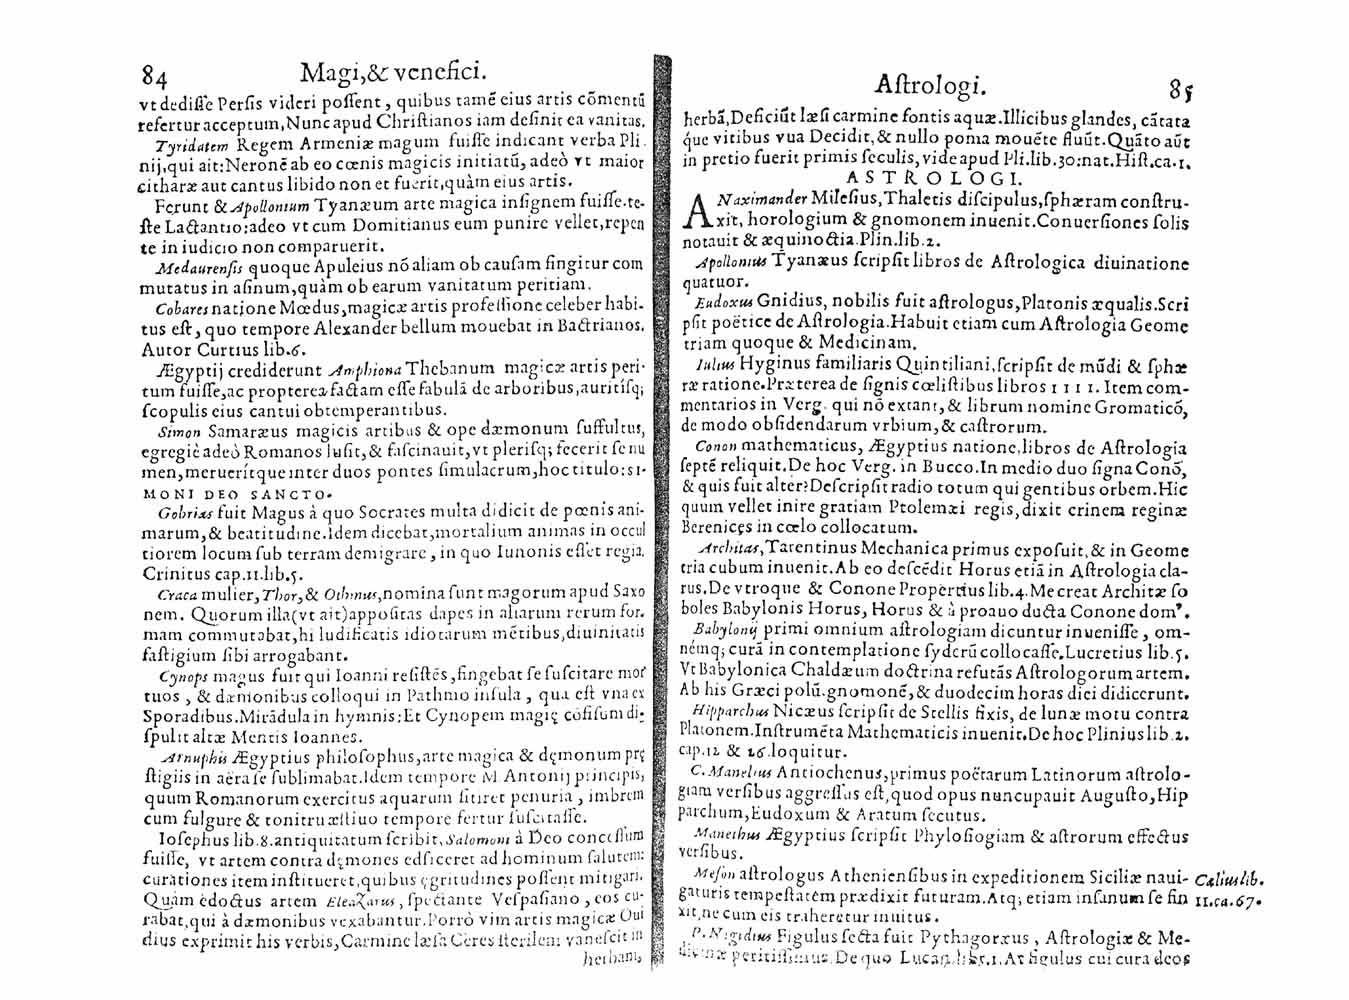 84 Magi,& venefici.
vt dediſſe Perſis videri poſſent, quibus tamẽ eius artis cõmentũ
refertur acceptum,Nunc apud Chriſtianos iam deſinit ea vanitas.
Tyridatem Regem Armeniæ magum fuiſſe indicant verba Pli
nij,qui ait:Neronẽ ab eo cœnis magicis initiatũ,adeò vt maior
citharæ aut cantus libido non et fuerit,quàm eius artis.
Ferunt & Apollonium Tyanæum arte magica inſignem fuiſſe.te-
ſte Lactantio:adeo vt cum Domitianus eum punire vellet,repen
te in iudicio non comparuerit.
Medaurenſis quoque Apuleius nõ aliam ob cauſam fingitur com
mutatus in aſinum,quàm ob earum vanitatum peritiam.
Cobares natione Mœdus,magicæ artis profeſſione celeber habi-
tus eſt, quo tempore Alexander bellum mouebat in Bactrianos,
Autor Curtius lib.6.
Ægyptij crediderunt Amphiona Thebanum magicæ artis peri-
tum fuiſſe,ac propterea factam eſſe fabulã de arboribus,auritiſq;
ſcopulis eius cantui obtemperantibus.
Simon Samaræus magicis artibus & ope dæmonum ſuffultus,
egregiè adeò Romanos luſit,& faſcinauit,vt pleriſq; fecerit ſe nu
men,merueritque inter duos pontes ſimulacrum,hoc titulo:SI-
MONI DEO SANCTO.
Gobrias fuit Magus à quo Socrates multa didicit de pœnis ani-
marum,& beatitudine.Idem dicebat,mortalium animas in occul
tiorem locum ſub terram demigrare, in quo Iunonis eſſet regia.
Crinitus cap.11.lib.5.
Craca mulier,Thor,& Othinus,nomina ſunt magorum apud Saxo
nem. Quorum illa(vt ait)appoſitas dapes in aliarum rerum for.
mam commutabat,hi ludificatis idiotarum mẽtibus,diuinitatis
faſtigium ſibi arrogabant.
Cynops magus fuit qui Ioanni reſiſtẽs,fingebat ſe ſuſcitare mor
tuos , & dæmonibus colloqui in Pathmo inſula , qua eſt vna ex
Sporadibus.Mirãdula in hymnis:Et Cynopem magiç cõfiſum di-
ſpulit altæ Mentis Ioannes.
Arnuphis Ægyptius philoſophus,arte magica & dęmonum prę
ſtigiis in aëra ſe ſublimabat.Idem tempore M Antonij principis,
quum Romanorum exercitus aquarum ſitiret penuria , imbrem
cum fulgure & tonitru æſtiuo tempore fertur ſuſcitaſſe.
Ioſephus lib.8.antiquitatum ſcribit, Salomoni à Deo conceſſum
fuiſſe, vt artem contra dęmones edſiceret ad hominum ſalutem:
curationes item inſtitueret,quibus ęgritudines poſſent mitigari.
Quàm edoctus artem Eleazarus, ſpectante Veſpaſiano, eos cu-
rabat,qui à dæmonibus vexabantur.Porrò vim artis magicæ Oui
dius exprimit his verbis,Carmine læſa Ceres ſterilem vaneſcit in
herbam,
Aſtrologi. 85
herbã,Deficiũt læſi carmine fontis aquæ.Illicibus glandes, cãtata
q́ue vitibus vua Decidit,& nullo poma mouẽte fluũt.Quãto aũt
in pretio fuerit primis ſeculis,vide apud Pli.lib.30.nat.Hiſt.ca.1.
ASTROLOGI.
ANaximander Mileſius,Thaletis diſcipulus,ſphæram conſtru-
xit, horologium & gnomonem inuenit.Conuerſiones ſolis
notauit & æquinoctia.Plin.lib.2.
Apollonius Tyanæus ſcripſit libros de Aſtrologica diuinatione
quatuor.
Eudoxus Gnidius, nobilis fuit aſtrologus,Platonis æqualis.Scri
pſit poëtice de Aſtrologia.Habuit etiam cum Aſtrologia Geome
triam quoque & Medicinam.
Iulius Hyginus familiaris Quintiliani,ſcripſit de mũdi & ſphæ
ræ ratione.Præterea de ſignis cœleſtibus libros 1111. Item com-
mentarios in Verg. qui nõ extant,& librum nomine Gromaticõ,
de modo obſidendarum vrbium,& caſtrorum.
Conon mathematicus, Ægyptius natione,libros de Aſtrologia
ſeptẽ reliquit.De hoc Verg. in Bucco.In medio duo ſigna Conõ,
& quis fuit alter?Deſcripſit radio totum qui gentibus orbem.Hic
quum vellet inire gratiam Ptolemæi regis,dixit crinem reginæ
Berenices in cœlo collocatum.
Architas,Tarentinus Mechanica primus expoſuit,& in Geome
tria cubum inuenit.Ab eo deſcẽdit Horus etiã in Aſtrologia cla-
rus.De vtroque & Conone Propertius lib.4.Me creat Architæ ſo
boles Babylonis Horus, Horus & à proauo ducta Conone dom⁹.
Babylonij primi omnium aſtrologiam dicuntur inueniſſe , om-
nẽmq; curã in contemplatione ſyderũ collocaſſe.Lucretius lib.5.
Vt Babylonica Chaldæum doctrina refutãs Aſtrologorum artem.
Ab his Græci polũ.gnomonẽ,& duodecim horas diei didicerunt.
Hipparchus Nicæus ſcripſit de Stellis fixis, de lunæ motu contra
Platonem.Inſtrumẽta Mathematicis inuenit.De hoc Plinius lib.2.
cap.12 & 26.loquitur.
C. Manelius Antiochenus,primus poëtarum Latinorum aſtrolo-
giam verſibus aggreſſus eſt,quod opus nuncupauit Auguſto,Hip
parchum,Eudoxum & Aratum ſecutus.
Manethus Ægyptius ſcripſit Phyloſiogiam & aſtrorum effectus
verſibus.
Meſon aſtrologus Athenienſibus in expeditionem Siciliæ naui-
gaturis tempeſtatem prædixit futuram.Atq; etiam inſanum ſe fin
xit,ne cum eis traheretur inuitus.
Cælius lib.
11.ca.67.
P. Nigidius Figulus ſecta fuit Pythagoræus , Aſtrologiæ & Me-
dicinæ peritiſſimus.De quo Lucan.lib.1.At figulus cui cura deos